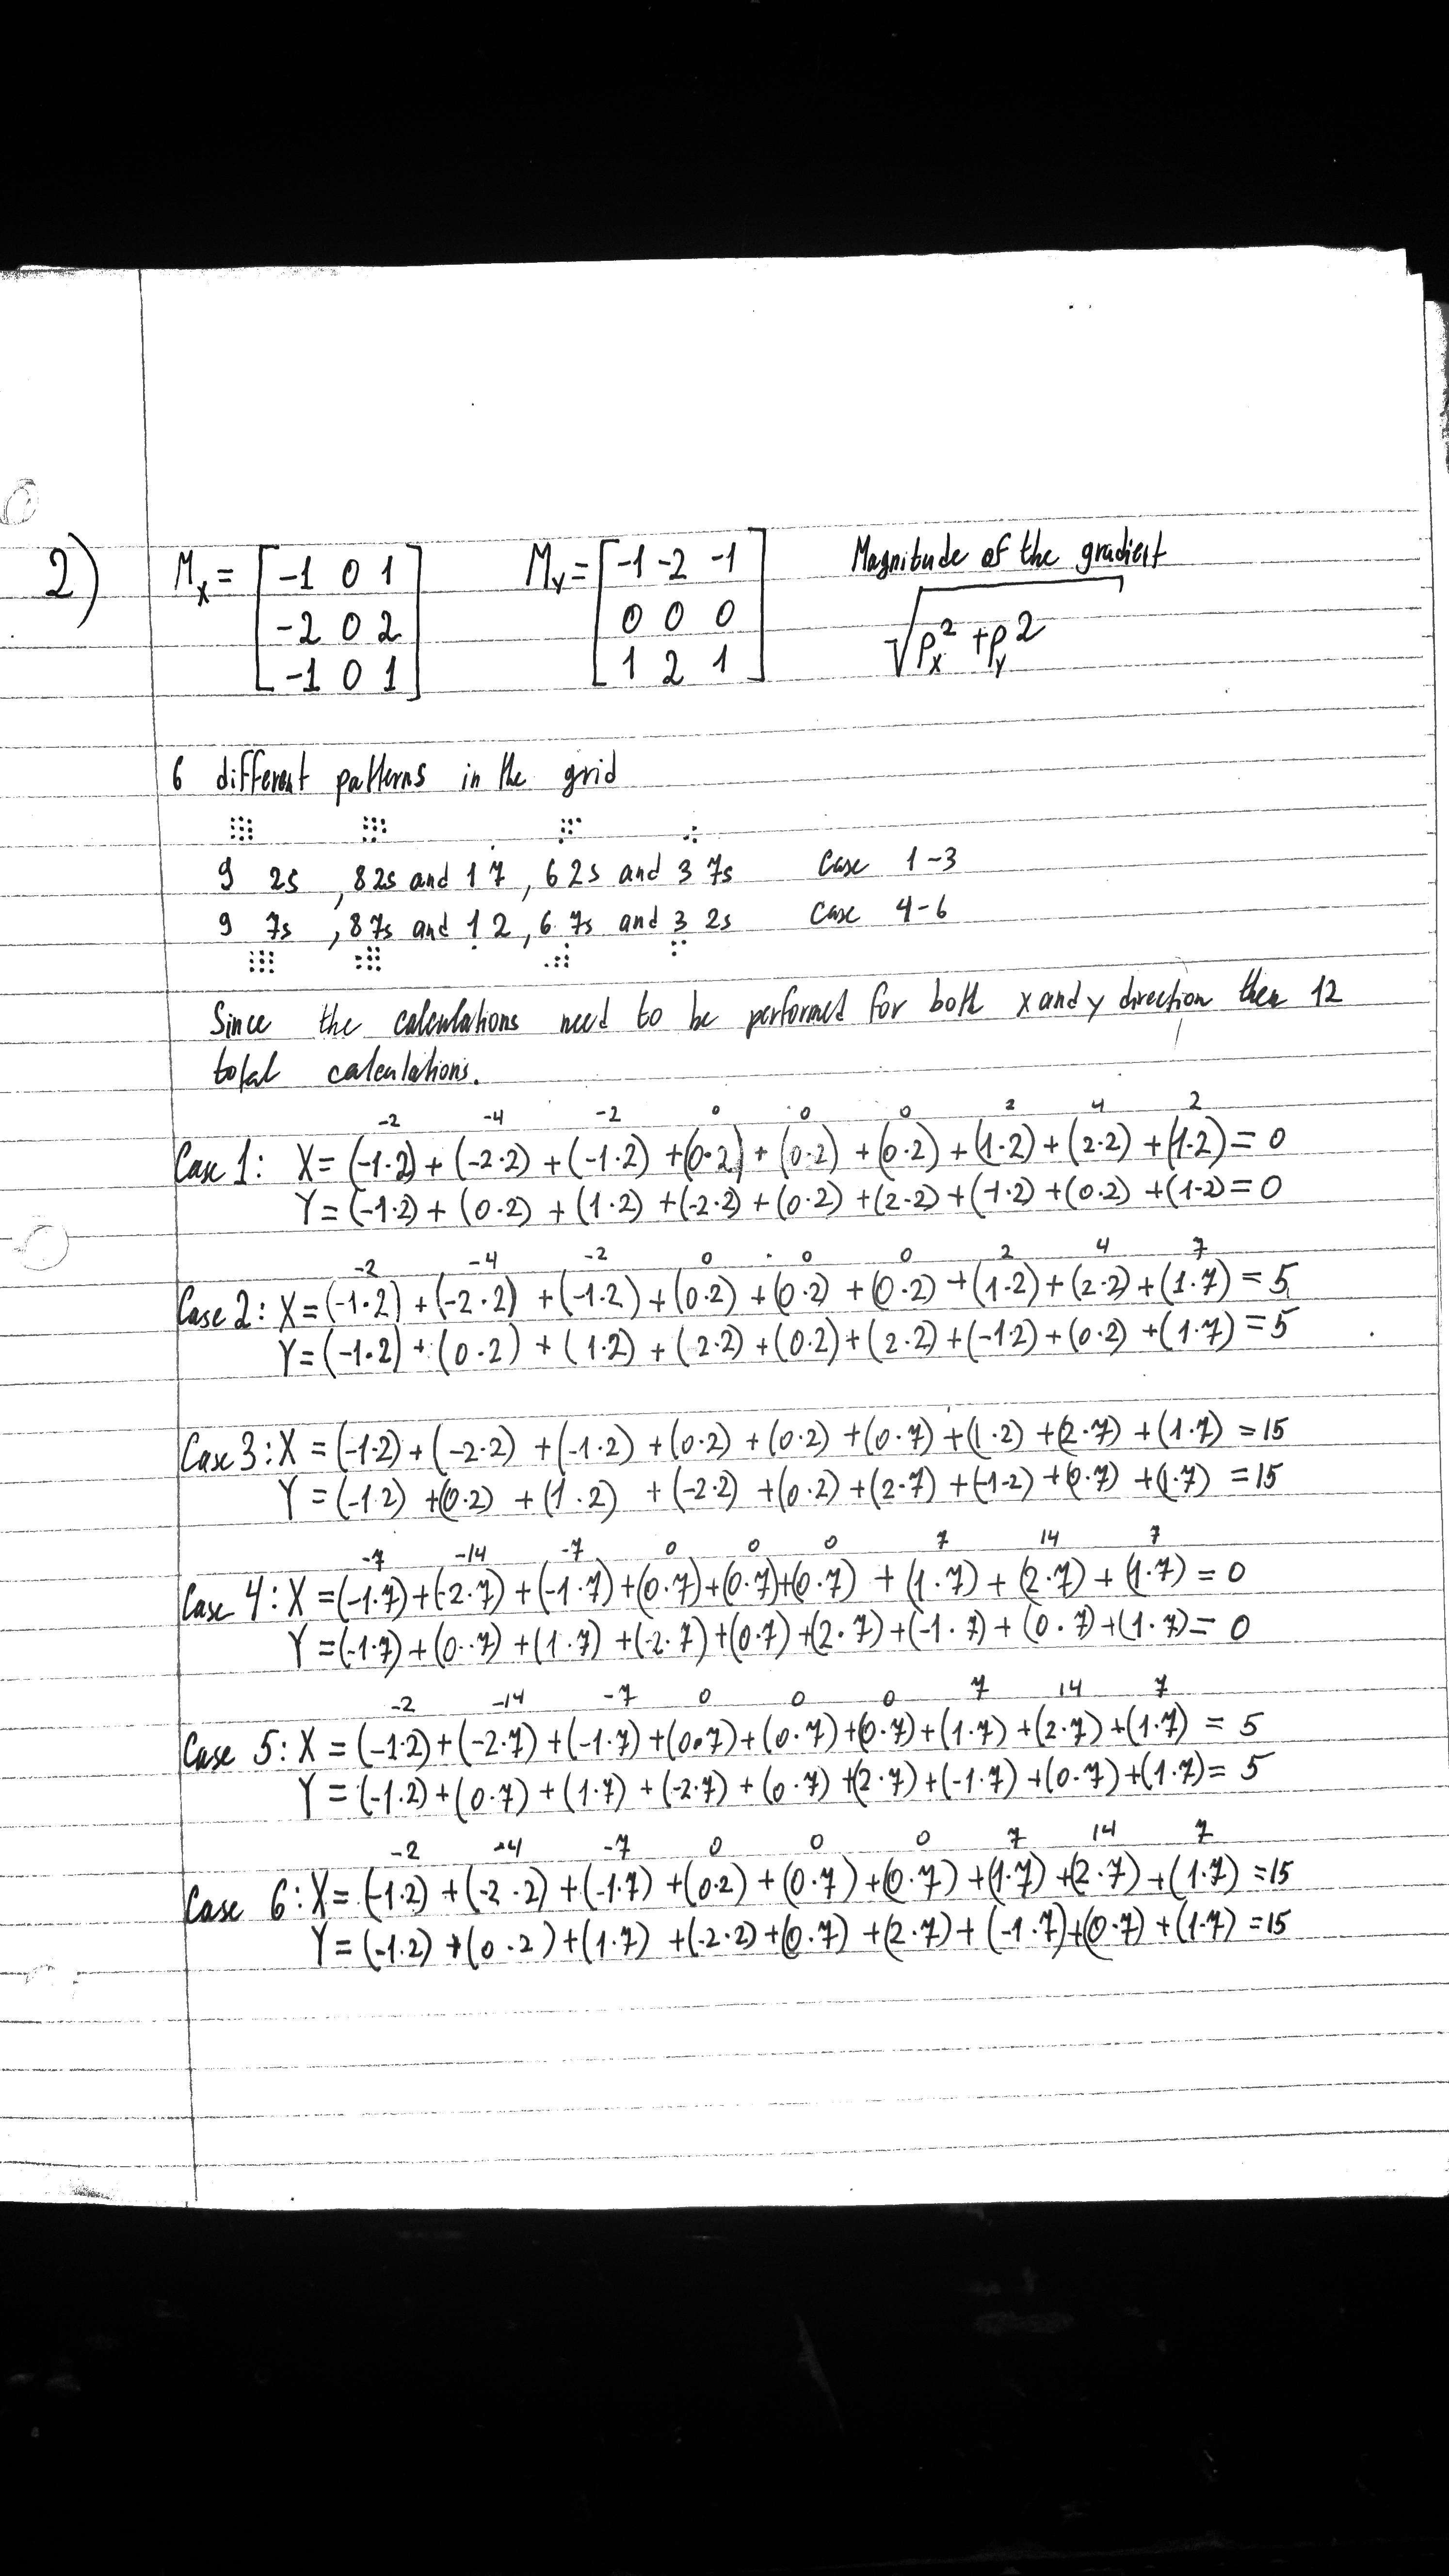 2) Mx = [-1 0 1 My = [-1 -2 -1 Magnitude of the gradient
-2 0 2 0 0 0 √Px² + Py2
-1 0 1] 1 2 1]
6 different patterns in the grid
9 2s , 8 2s and 1 7 , 6 2s and 3 7s Case 1-3
9 7s , 8 7s and 1 2 , 6 7s and 3 2s Case 4-6
Since the calculations need to be performed for both x and y direction then 12
total calculations.
-2 -4 -2 0 0 0 2 4 2
Case 1: X = (-1·2) + (-2·2) + (-1·2) + (0·2) + (0·2) + (0·2) + (1·2) + (2·2) + (1·2) = 0
Y = (-1·2) + (0·2) + (1·2) + (-2·2) + (0·2) + (2·2) + (-1·2) + (0·2) + (1·2) = 0
-2 -4 -2 0 0 0 2 4 7
Case 2: X = (-1·2) + (-2·2) + (-1·2) + (0·2) + (0·2) + (0·2) + (1·2) + (2·2) + (1·7) = 5
Y = (-1·2) + (0·2) + (1·2) + (-2·2) + (0·2) + (2·2) + (-1·2) + (0·2) + (1·7) = 5
Case 3: X = (-1·2) + (-2·2) + (-1·2) + (0·2) + (0·2) + (0·7) + (1·2) + (2·7) + (1·7) = 15
Y = (-1·2) + (0·2) + (1·2) + (-2·2) + (0·2) + (2·7) + (-1·2) + (0·7) + (1·7) = 15
-7 -14 -7 0 0 0 7 14 7
Case 4: X = (-1·7) + (-2·7) + (-1·7) + (0·7) + (0·7) + (0·7) + (1·7) + (2·7) + (1·7) = 0
Y = (-1·7) + (0·7) + (1·7) + (-2·7) + (0·7) + (2·7) + (-1·7) + (0·7) + (1·7) = 0
-2 -14 -7 0 0 0 7 14 7
Case 5: X = (-1·2) + (-2·7) + (-1·7) + (0·7) + (0·7) + (0·7) + (1·7) + (2·7) + (1·7) = 5
Y = (-1·2) + (0·7) + (1·7) + (-2·7) + (0·7) + (2·7) + (-1·7) + (0·7) + (1·7) = 5
-2 -4 -7 0 0 0 7 14 7
Case 6: X = (-1·2) + (-2·2) + (-1·7) + (0·2) + (0·7) + (0·7) + (1·7) + (2·7) + (1·7) = 15
Y = (-1·2) + (0·2) + (1·7) + (-2·2) + (0·7) + (2·7) + (-1·7) + (0·7) + (1·7) = 15